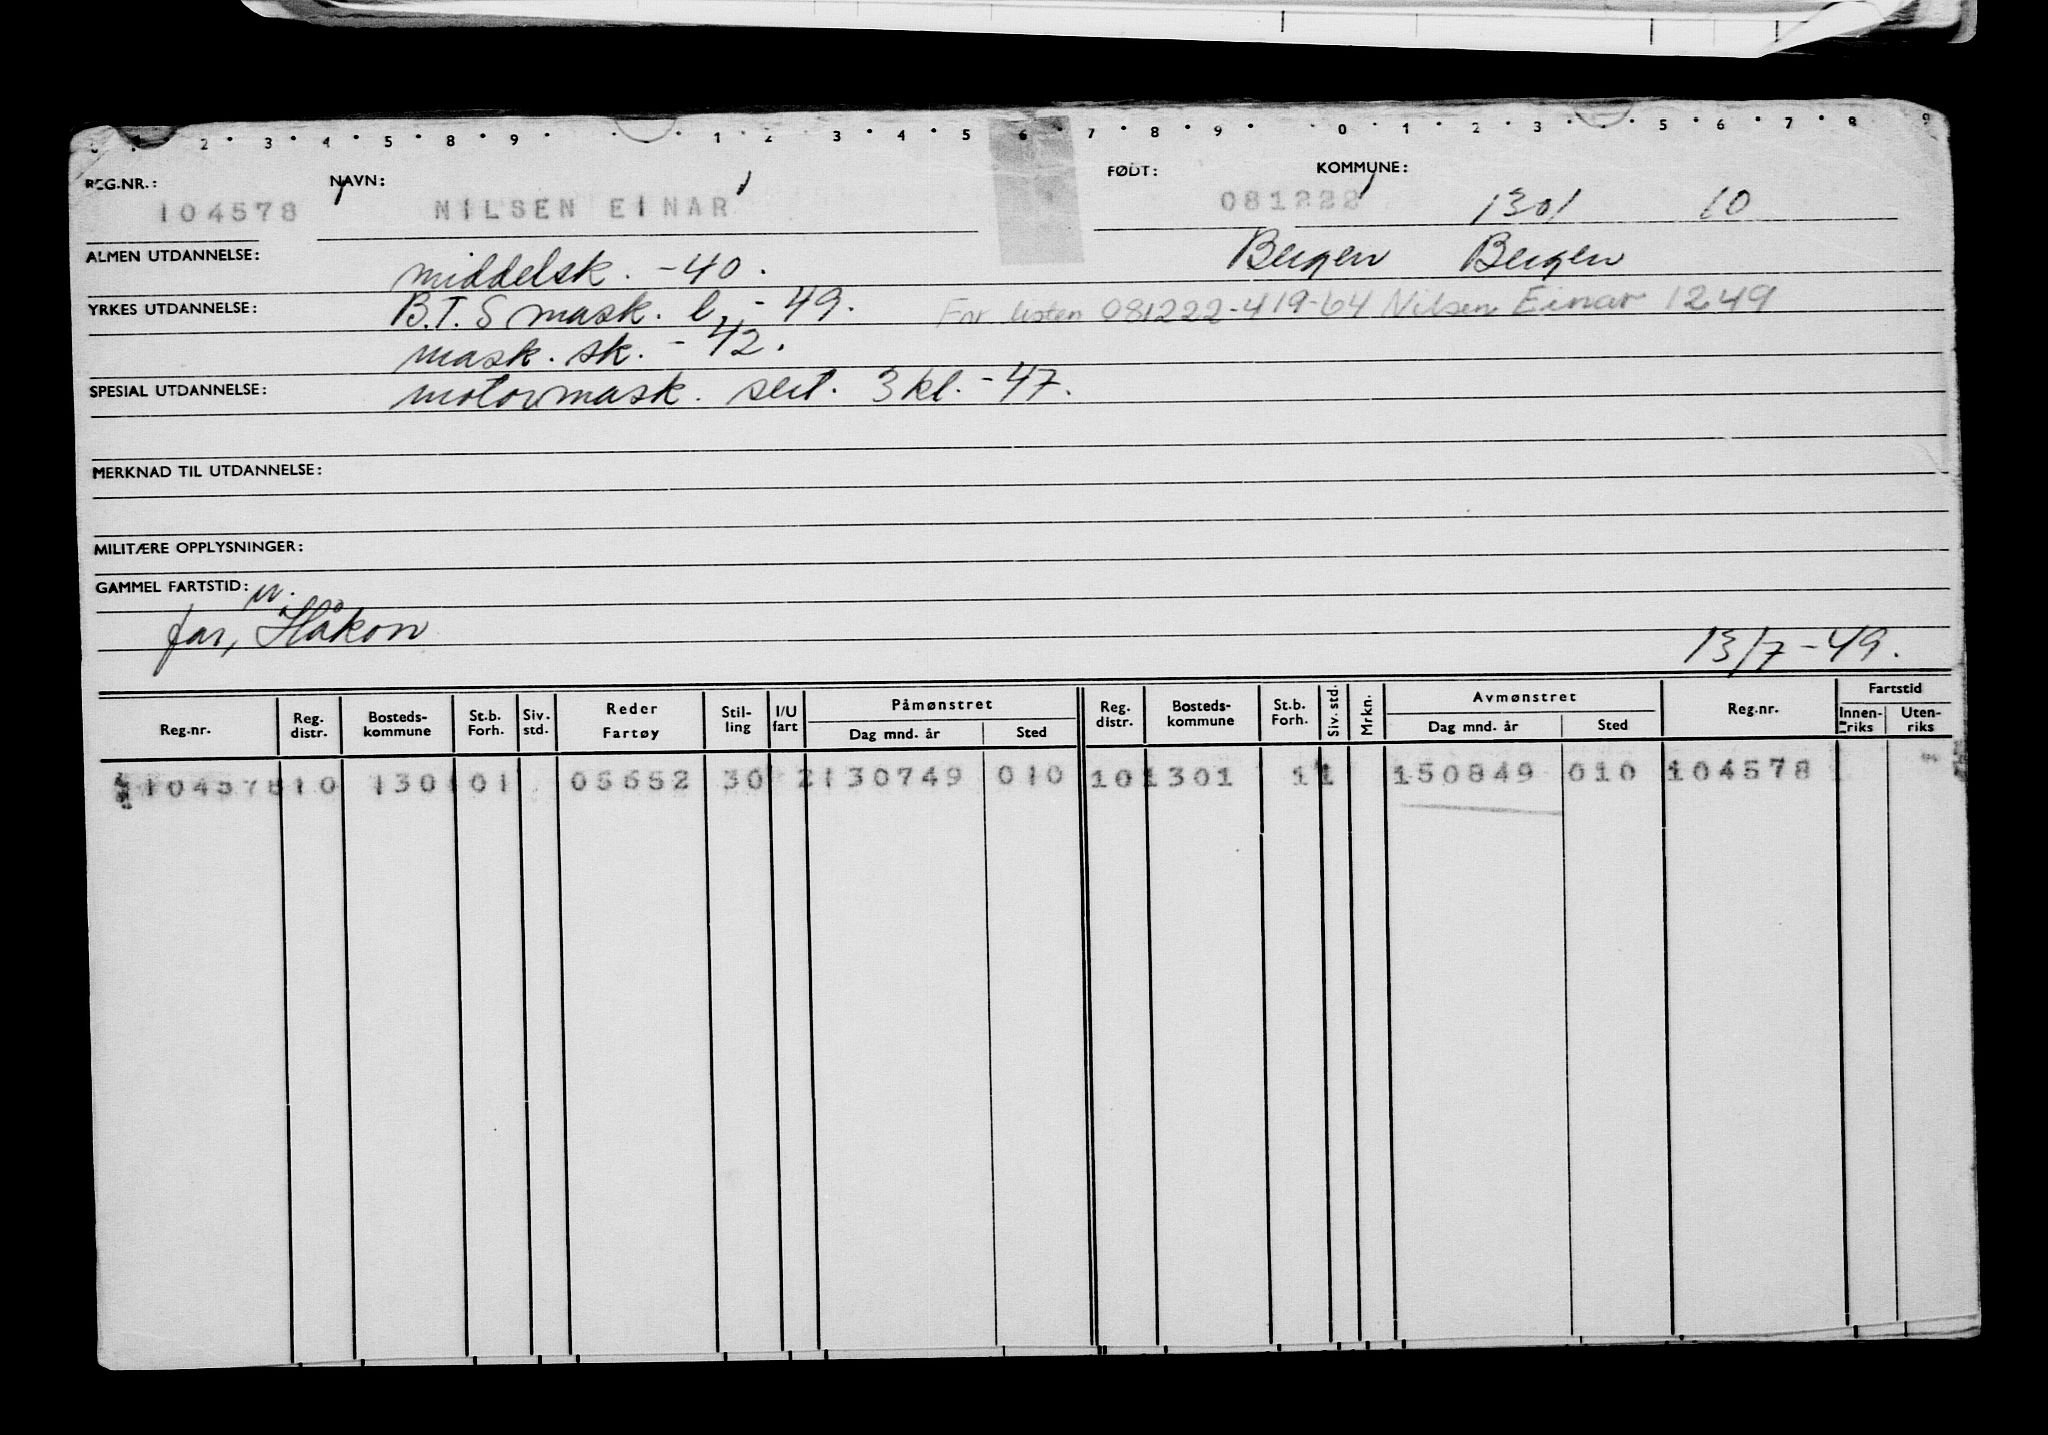 1 2 3 4 5 8 9 1 2 3 4 5 6 7 8 9 0 1 2 3 5 6 7 8 9
REG.NR.: NAVN: FØDT: KOMMUNE:
104578 NILSEN EINAR 081222 1301 10
ALMEN UTDANNELSE: middelsk. -40. Bergen Bergen
YRKES UTDANNELSE: B.T.S mask. l. - 49. For listen 081222-419-64 Nilsen Einar 1249
mask. sk. - 42.
SPESIAL UTDANNELSE: motormask. sert. 3 kl. - 47.
MERKNAD TIL UTDANNELSE:
MILITÆRE OPPLYSNINGER:
GAMMEL FARTSTID:
far, Håkon 13/7-49.
Reg.nr. Reg. distr. Bosteds-kommune St.b. Forh. Siv. std. Reder Fartøy Stil-ling I/U fart Påmønstret Dag mnd. år Sted Reg. distr. Bosteds-kommune St.b. Forh. Siv. std. Mrkn. Avmønstret Dag mnd. år Sted Reg.nr. Fartstid Innen-riks Uten-riks
104578 10 1301 01 05652 30 2 130749 010 10 1301 1 1 150849 010 104578